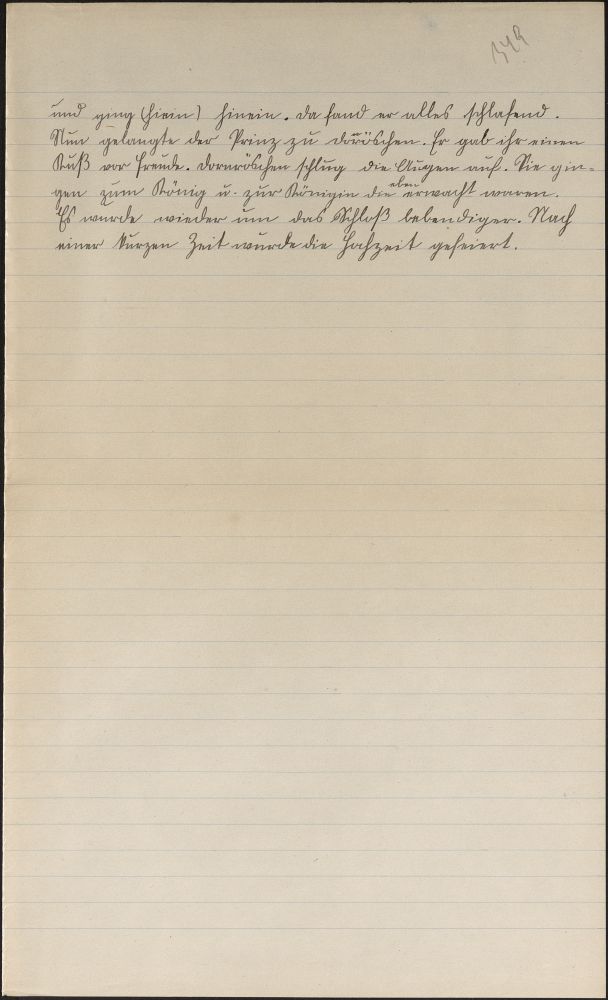 und ging (hiein) hinein. Da fand er alles schlafend.
Nun gelangte der Prinz zu Doröschen. Er gab ihr einen
Kuß vor Freude. Dornröschen schlug die Augen auf. Sie gin-
gen zum König u. zur Königin die eben erwacht waren.
Es wurde wieder um das Schloß lebendiger. Nach
einer kurzen Zeit wurde die Hohzeit gefeiert.